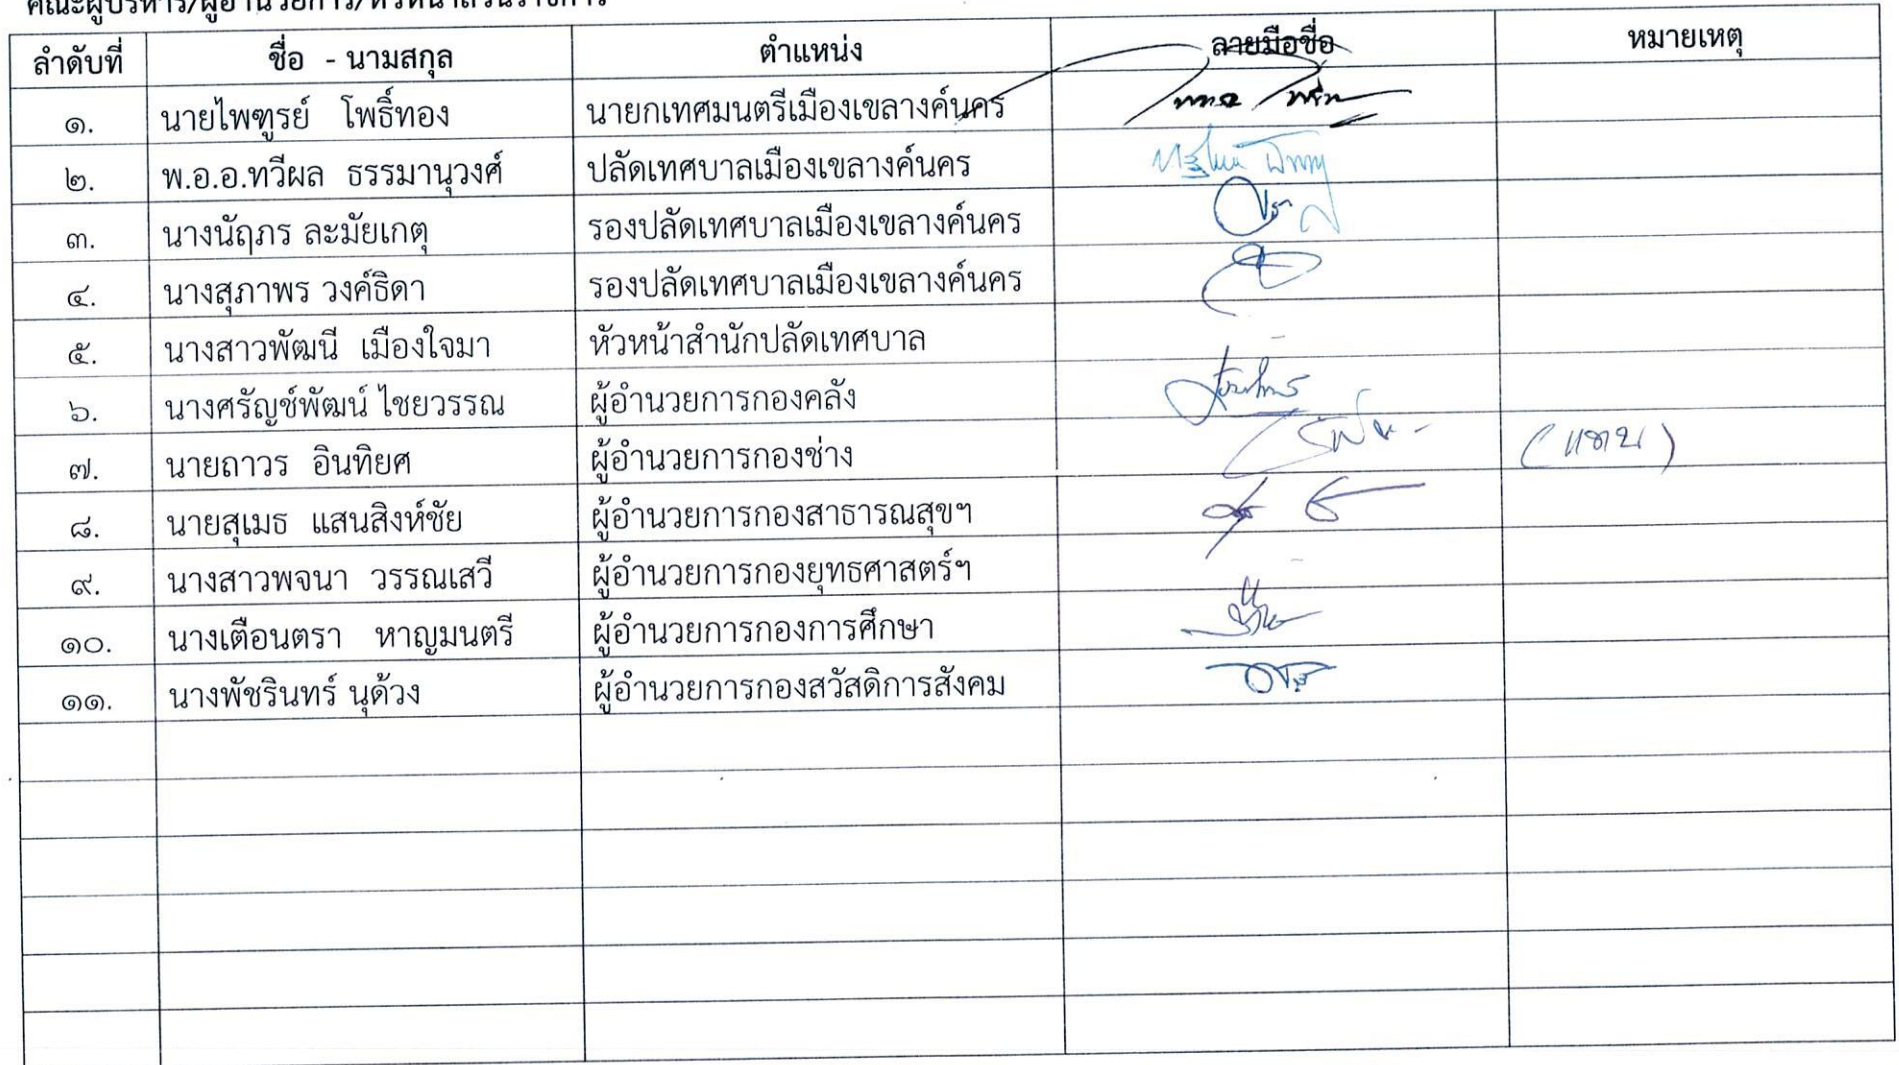 คณะผู้บริหาร/ผู้อำนวยการ/หัวหน้าส่วนราชการ
ลำดับที่ ชื่อ - นามสกุล ตำแหน่ง ลายมือชื่อ หมายเหตุ
๑. นายไพฑูรย์ โพธิ์ทอง นายกเทศมนตรีเมืองเขลางค์นคร
๒. พ.อ.อ.ทวีผล ธรรมานุวงศ์ ปลัดเทศบาลเมืองเขลางค์นคร
๓. นางนัฤภร ละมัยเกตุ รองปลัดเทศบาลเมืองเขลางค์นคร
๔. นางสุภาพร วงค์ธิดา รองปลัดเทศบาลเมืองเขลางค์นคร
๕. นางสาวพัฒนี เมืองใจมา หัวหน้าสำนักปลัดเทศบาล -
๖. นางศรัญช์พัฒน์ ไชยวรรณ ผู้อำนวยการกองคลัง
๗. นายถาวร อินทิยศ ผู้อำนวยการกองช่าง (แทน)
๘. นายสุเมธ แสนสิงห์ชัย ผู้อำนวยการกองสาธารณสุขฯ
๙. นางสาวพจนา วรรณเสวี ผู้อำนวยการกองยุทธศาสตร์ฯ -
๑๐. นางเตือนตรา หาญมนตรี ผู้อำนวยการกองการศึกษา
๑๑. นางพัชรินทร์ นุด้วง ผู้อำนวยการกองสวัสดิการสังคม